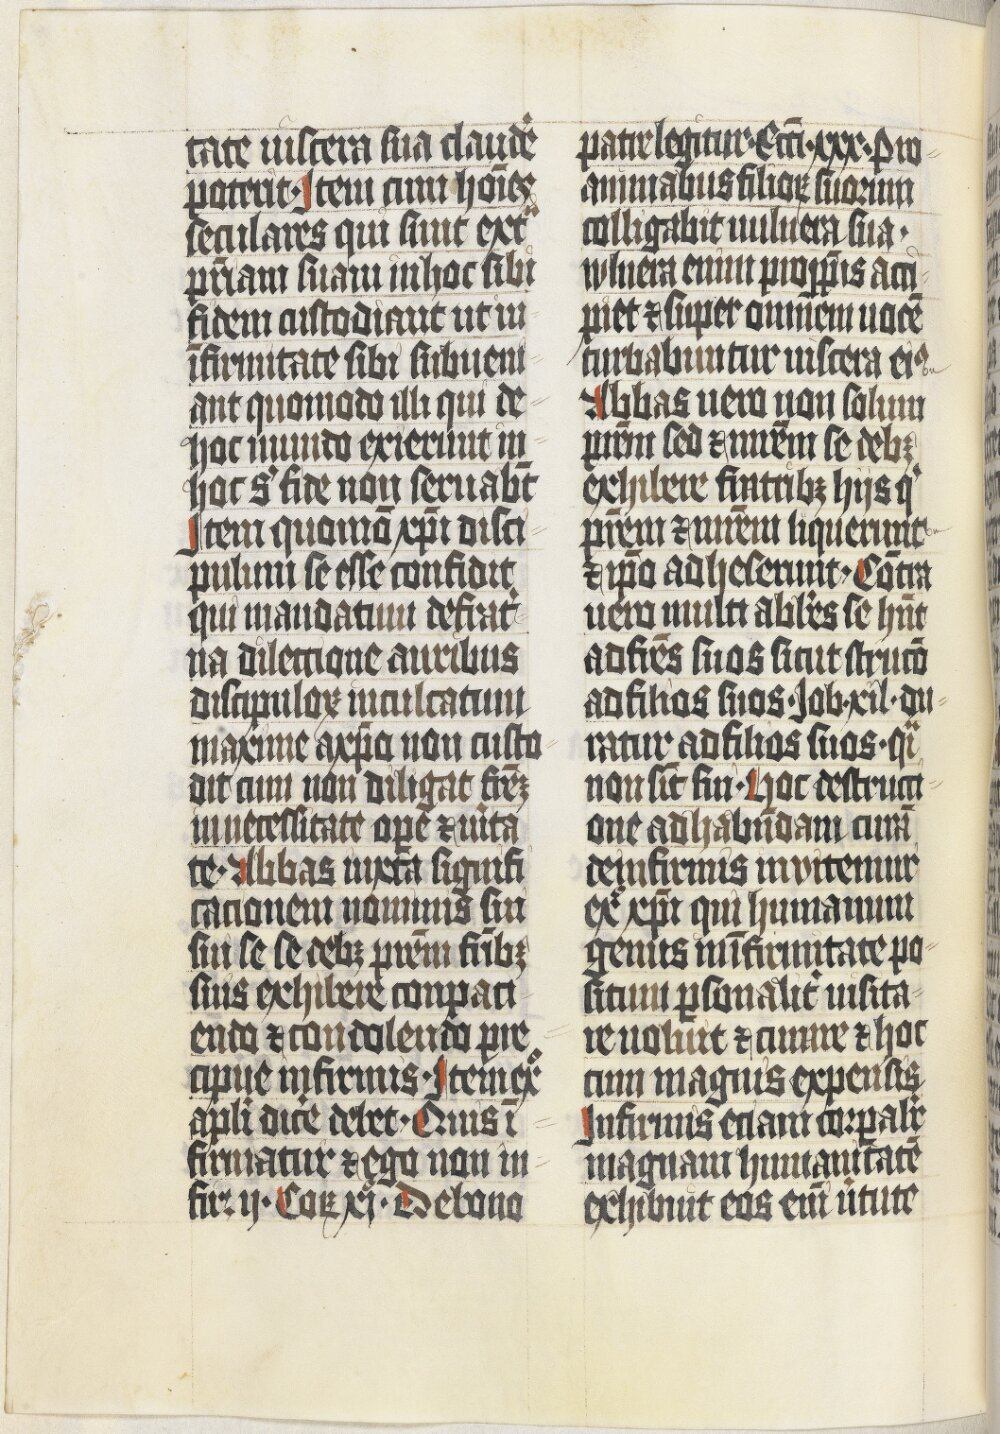 tate uiscera sua claude᷑
poterit· Item cum hoı̄ēs
seculares qui sunt ext᷑
pr̄iam suam in hoc sibi
fidem custodiant ut in
ı̄firmitate sibi subueni
ant quomodo illi qui de
hoc mundo exierunt in
hoc s᷑ fide non seruab̄t
Item quomō xp̄i disci
pulum se esse confidit
qui mandatum de frat᷑
na dilectione auribus
discipuloꝝ inculcatum
maxime a xp̄o non custo
dit cum non diligat fr̄eꝫ
in necessitate ope᷑ ⁊ uı̄ta
te· Abbas iuxta signifi
cationem nominis sui
sui se se debꝫ pr̄em fr̄ibꝫ
suis exhibere conpaci
endo ⁊ condolendo pre
cipue infirmis· Item exͦ
apl̄i dice᷑ debet· Quis ı̄
firmatur ⁊ ego non in
fir· ij· Coꝝ xj· De bono
patre legitur· Ecc̄i· xxx· Pro
animabus filioꝝ suorum
colligabit uulnera sua·
wlnera enim propr̄iis acci
piet ⁊ super omnem uocē
turbabuntur uiscera eiꝰ
Abbas uero non solum
pr̄em sed ⁊ mr̄em se debꝫ
exhibere fratribꝫ hijs qͥ
pr̄em ⁊ mr̄em liquerunt
⁊ ip̄o adheserunt· Cōtra
uero multi abb̄es se hn̄t
ad fr̄es suos sicut strucō
ad filios suos· Job· xxl· du
ratur ad filios suos· qͣi
non sı̄t sui· Hoc destructi
one ad habundam curā
de infirmis inuitemur
exͦ xp̄i qui humanum
genus in ı̄firmitate po
situm ꝑsonalit᷑ uisita
re uoluit ⁊ curare ⁊ hoc
cum magnis expensis
Infirmis etiam corꝑalit᷑
magnam humanitatē
exhibuit eos enı̄ uı̄tute